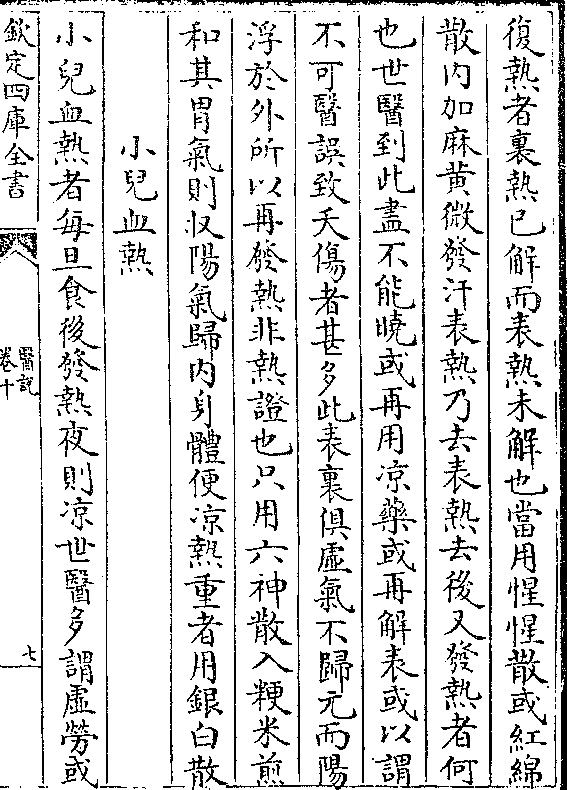 復熱者裏熱已解而表熱未解也當用惺惺散或紅綿
散内加麻黄微發汗表熱乃去表熱去後又發熱者何
也世醫到此盡不能曉或再用凉藥或再解表或以謂
不可醫誤致夭傷者甚多此表裏俱虛氣不歸元而陽
浮於外所以再發熱非熱證也只用六神散入粳米煎
和其胃氣則收陽氣歸内身體便凉熱重者用銀白散
小兒血熱
小兒血熱者每旦食後發熱夜則凉世醫多謂虛勞或
欽定四庫全書
醫説
卷十
七